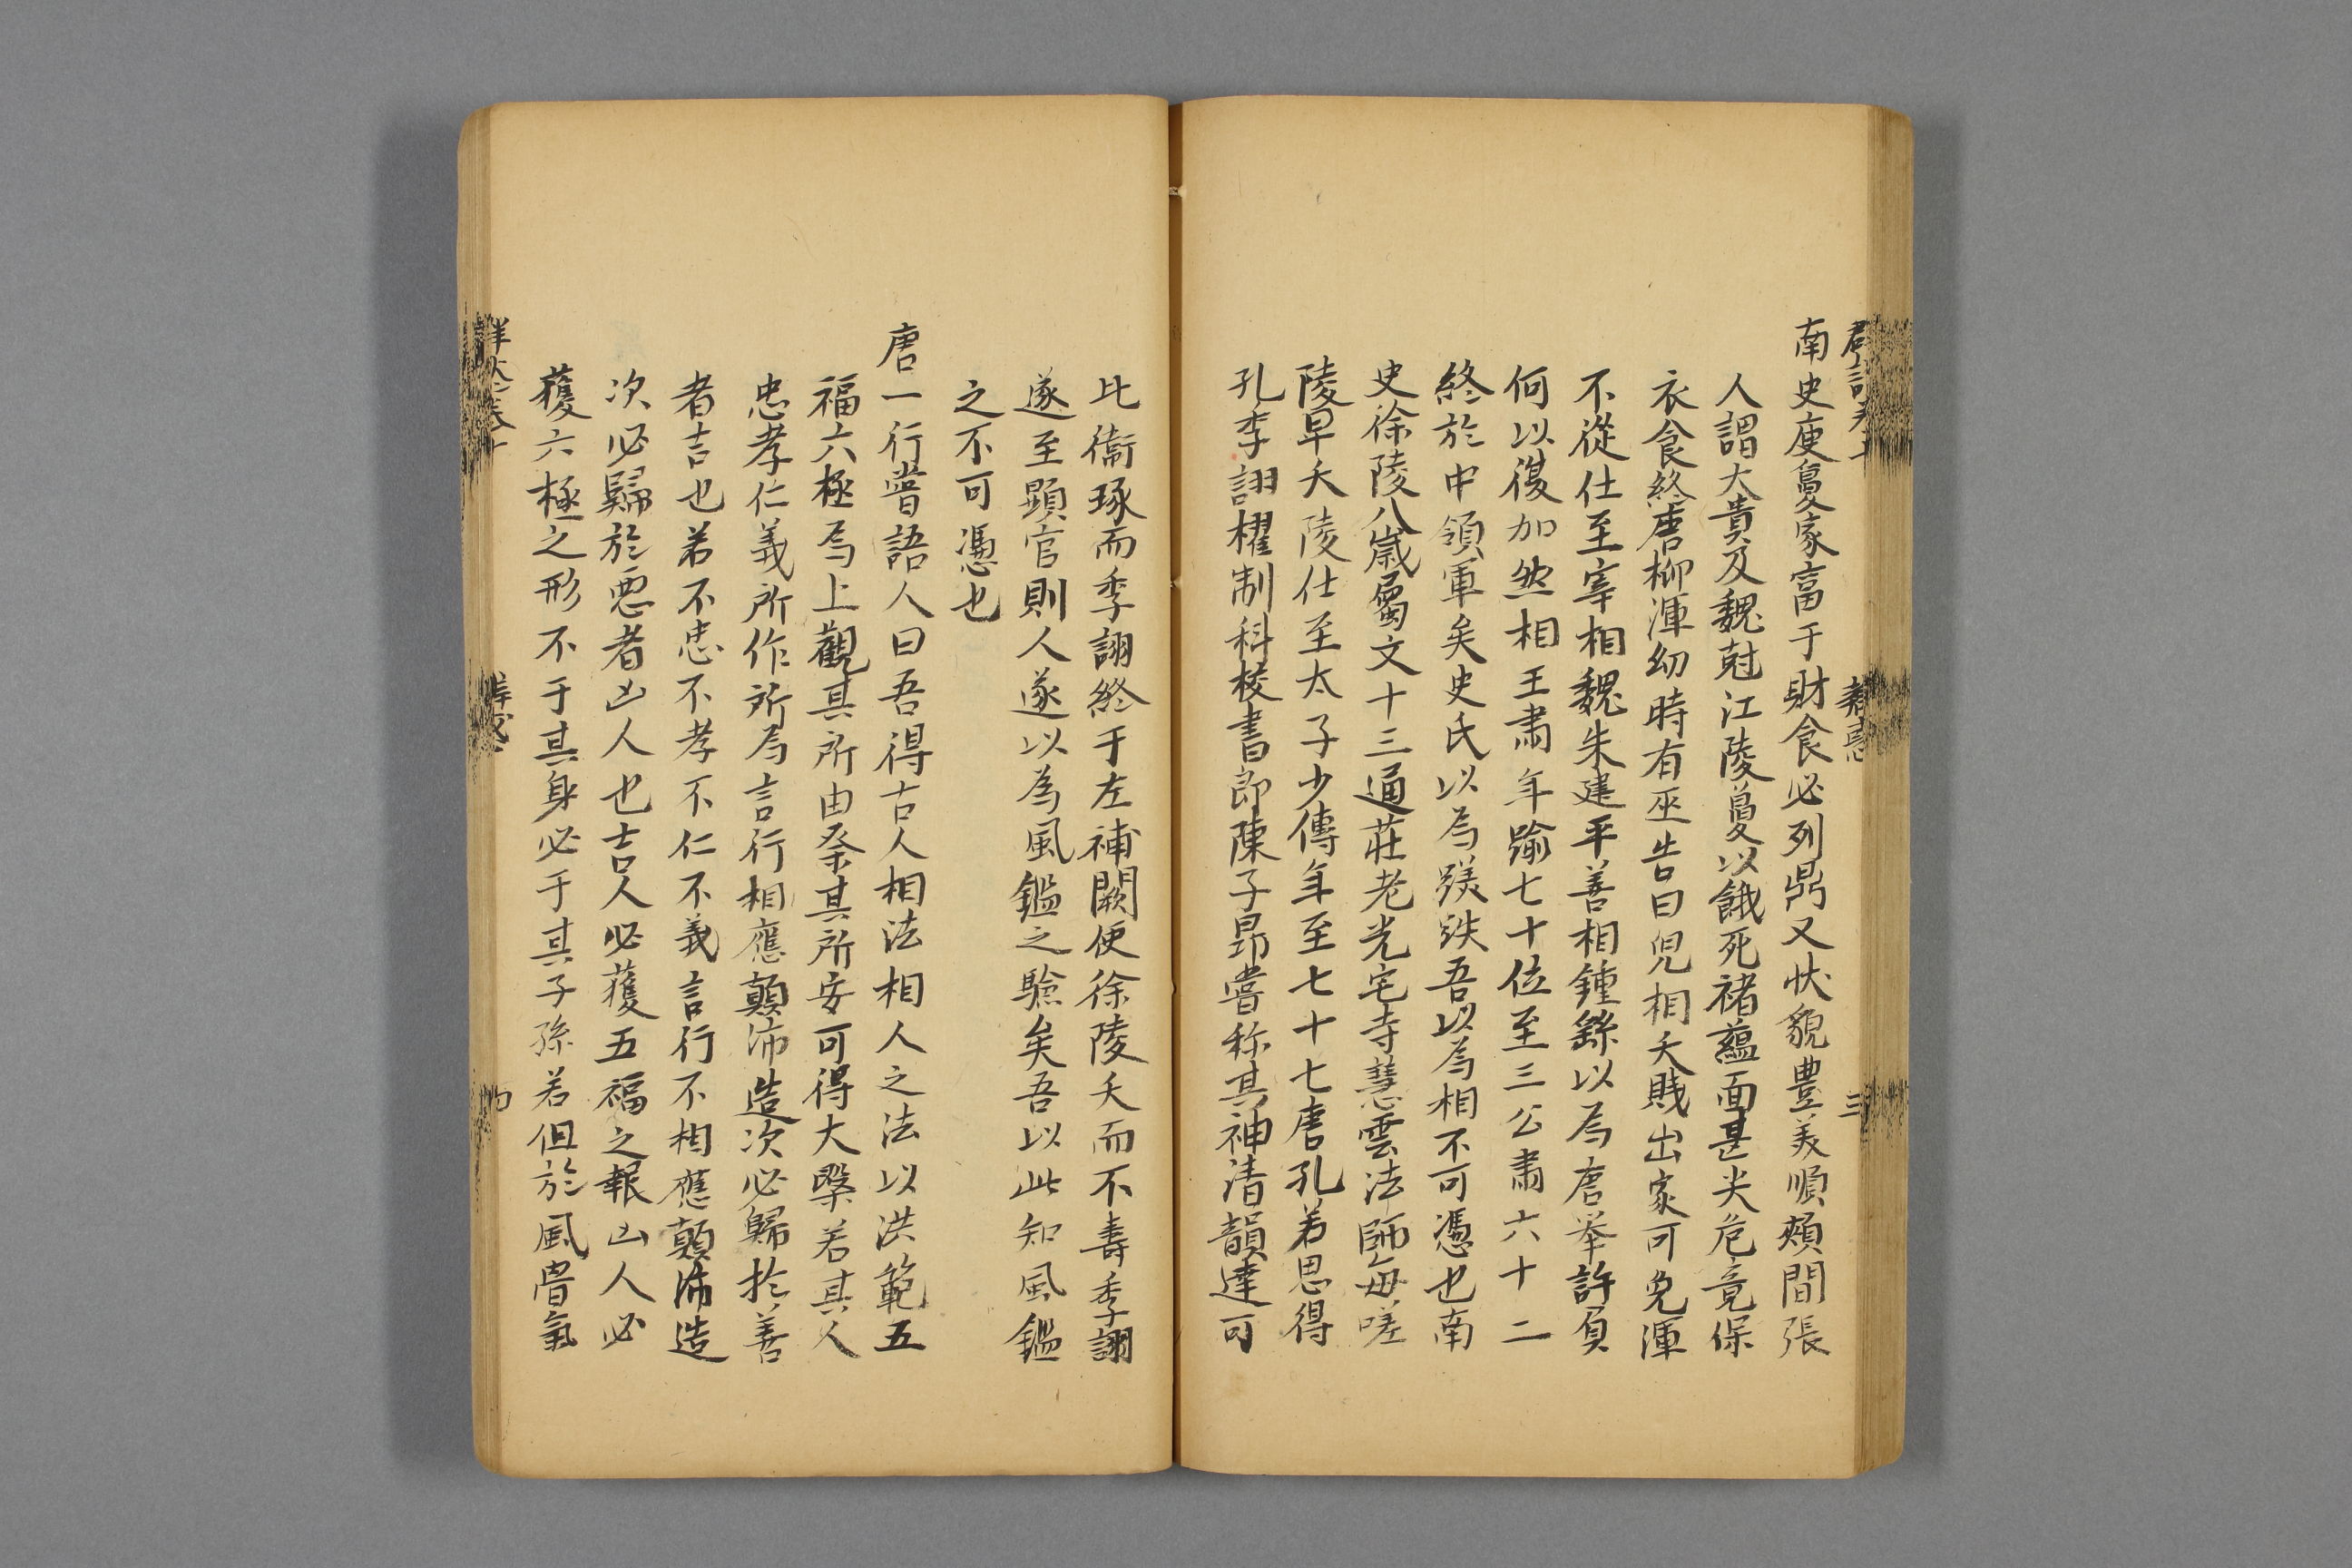 南史庾敻家富于財食必列鼎又狀貌豊美順頰間張
人謂大貴及魏尅江陵敻以餓死褚蘊面甚尖危竟保
衣食終唐柳渾幼時有巫告曰児相夭賤出家可免渾
不從仕至宰相魏朱建平善相鍾繇以為唐举許負
何以復加然相王肅年踰七十位至三公肅六十二
終於中領軍矣史氏以為蹉跌吾以為相不可憑也南
史徐陵八歲屬文十三通莊老光宅寺慧雲法師每嗟
陵早夭陵仕至太子少傅年至七十七唐孔若思得
孔季詡擢制科校書郎陳子昻嘗称其神清韻達可
比衞琢而季詡終于左補闕使徐陵夭而不壽季詡
遂至顕官則人遂以為風鑑之驗矣吾以此知風鑑
之不可憑也
唐一行嘗語人曰吾得古人相法相人之法以洪範五
福六極為上觀其所由察其所安可得大槩若其人
忠孝仁義所作所為言行相應顛沛造次必歸於善
者吉也若不忠不孝不仁不義言行不相應顛沛造
次必歸於悪者凶人也吉人必獲五福之報凶人必
獲六極之形不于其身必于其子孫若但於風骨氣